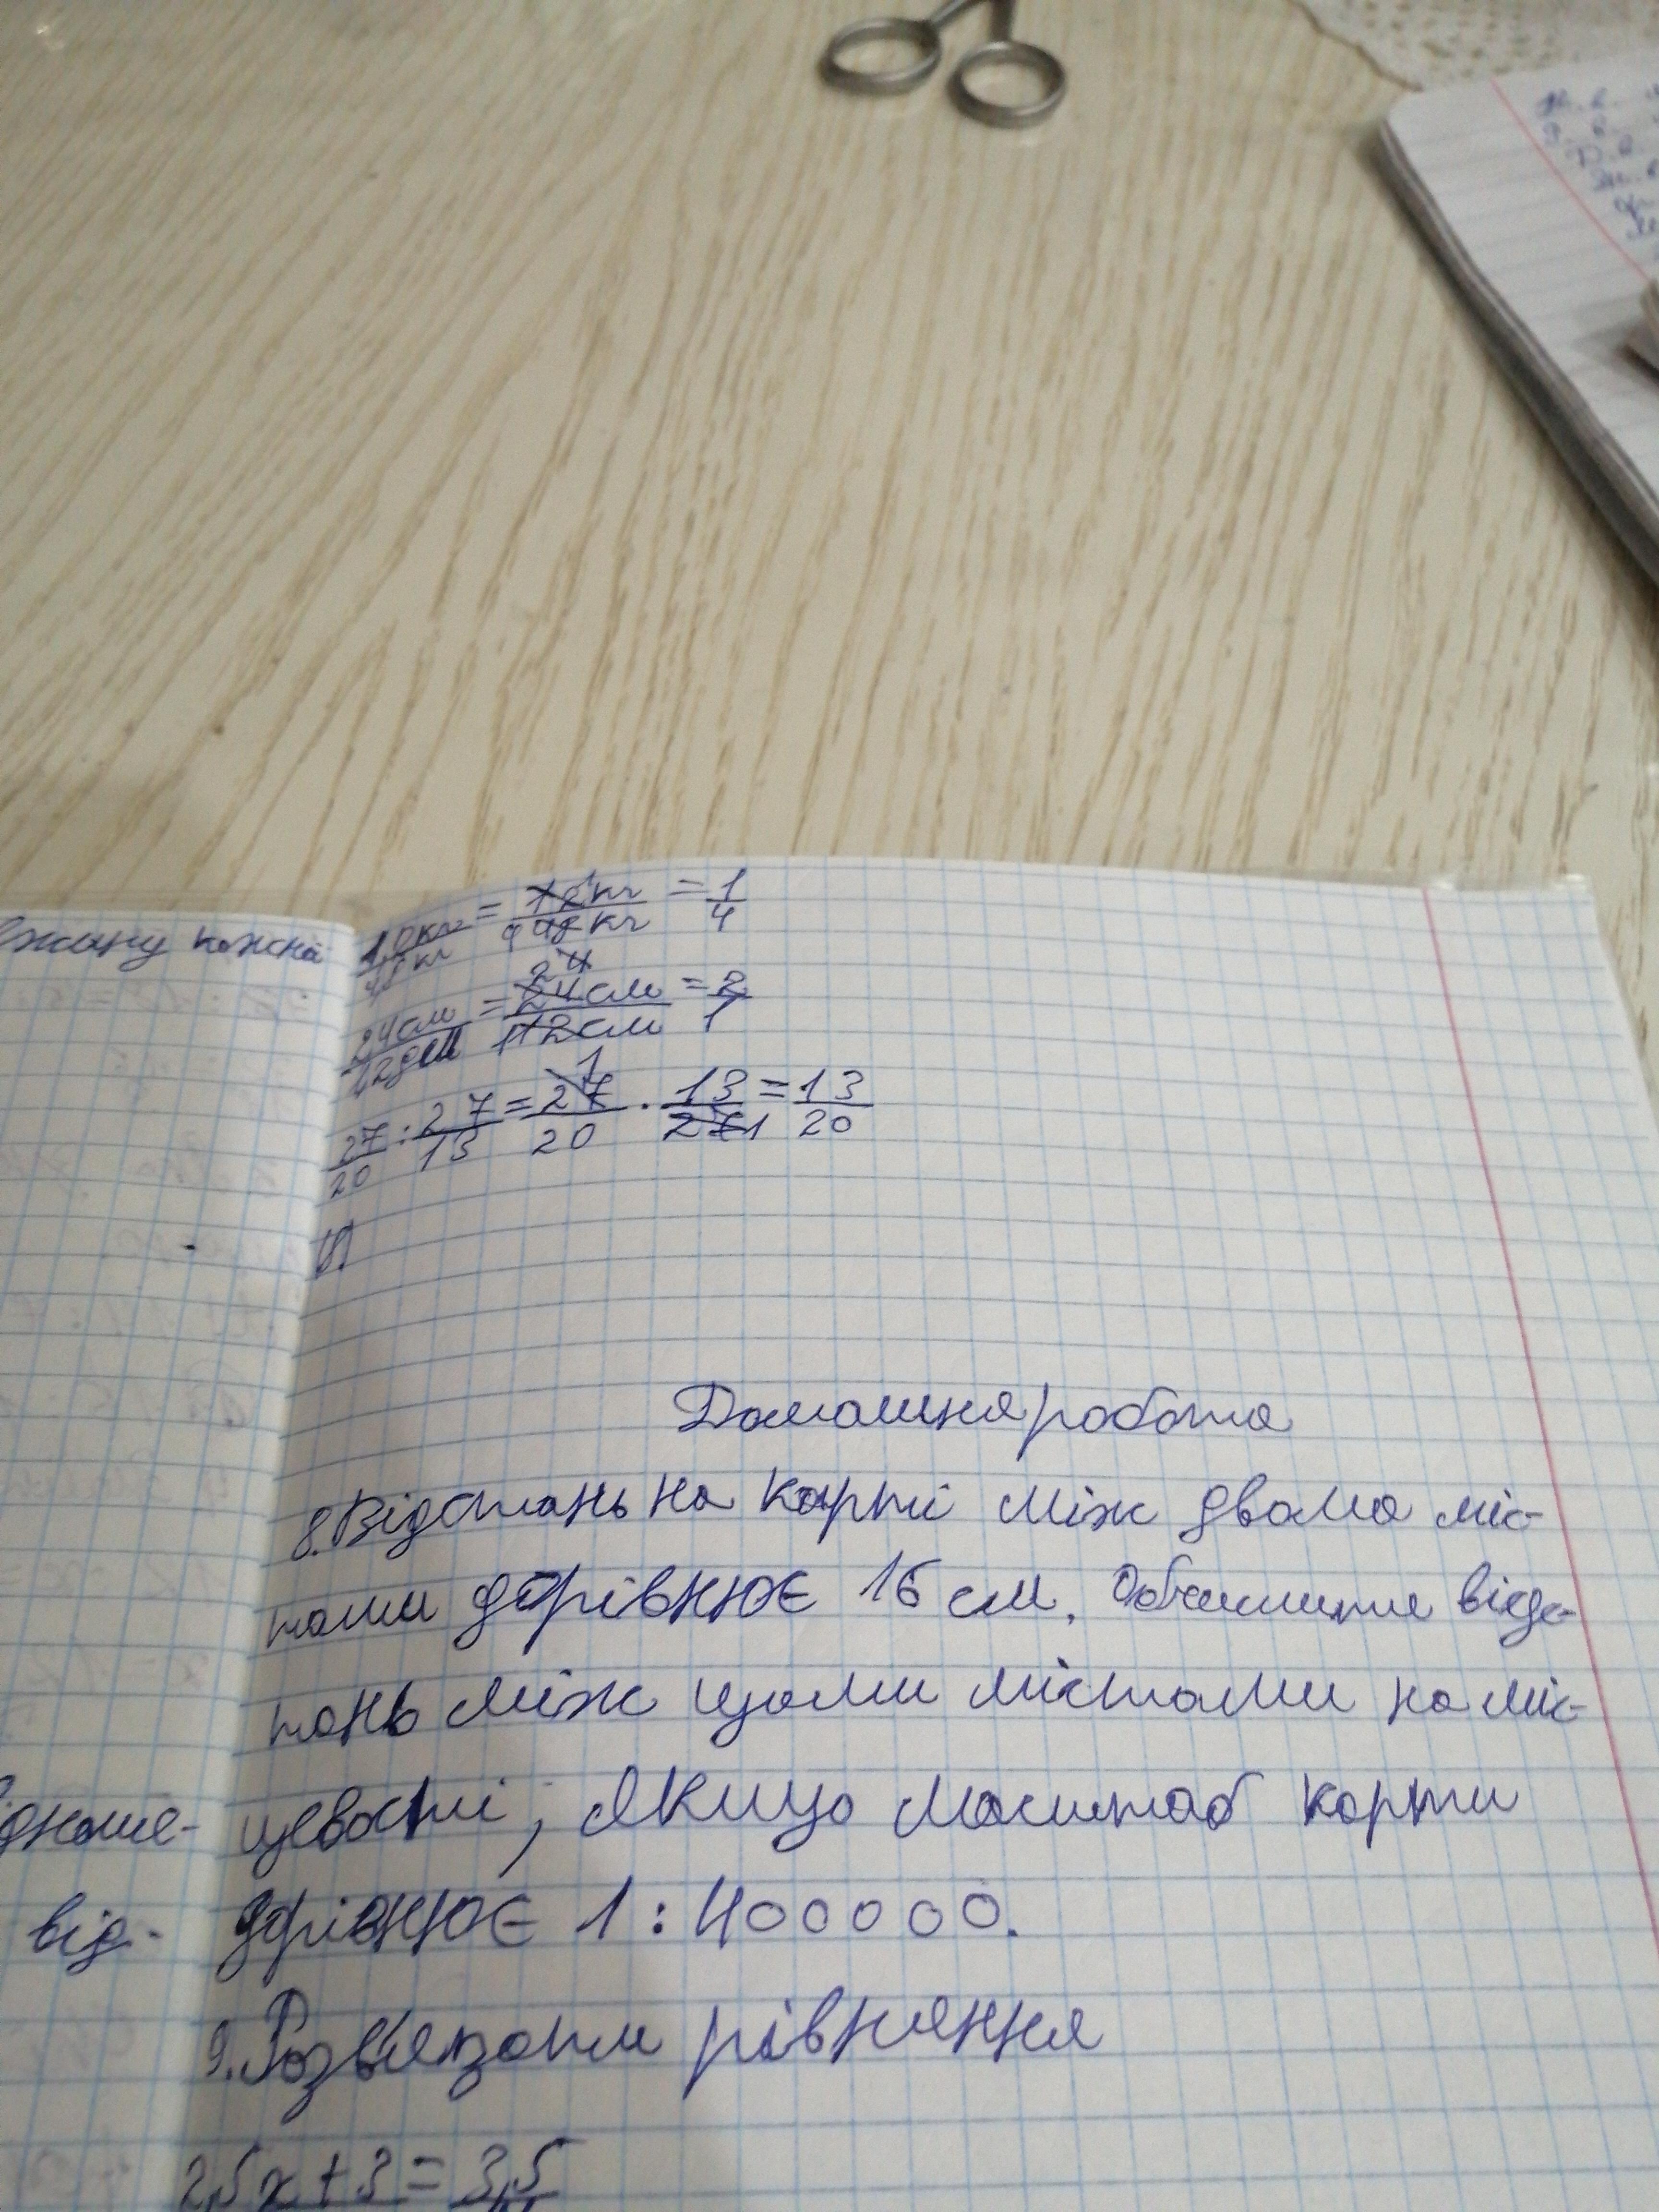 жину кожна
= 12кг/48кг = 1/4
24см/12дм = 24см/12см = 2/1
27/20 : 27/13 = 27/20 · 13/27 = 13/20
Домашня робота
8. Відстань на карті між двома міс-
тами дорівнює 16 см. Обчислите відс-
тань між цими містами на міс-
цевості, якщо масштаб карти
дорівнює 1 : 400000.
від-
9. Розв'язати рівняння
2,5x+3 = 3,5